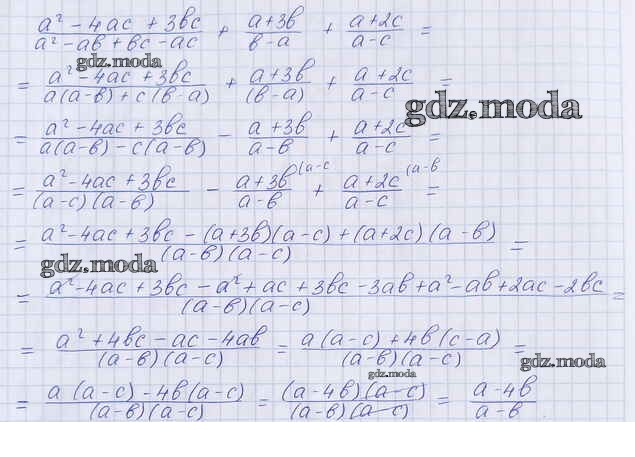 (a² - 4ac + 3bc)/(a² - ab + bc - ac) + (a + 3b)/(b - a) + (a + 2c)/(a - c) =
gdz.moda
= (a² - 4ac + 3bc)/(a(a - b) + c(b - a)) + (a + 3b)/(b - a) + (a + 2c)/(a - c) =
gdz.moda
= (a² - 4ac + 3bc)/(a(a - b) - c(a - b)) - (a + 3b)/(a - b) + (a + 2c)/(a - c) =
= (a² - 4ac + 3bc)/((a - c)(a - b)) - (a + 3b)/(a - b) (a - c + (a + 2c)/(a - c) (a - b =
= (a² - 4ac + 3bc - (a + 3b)(a - c) + (a + 2c)(a - b))/((a - b)(a - c)) =
gdz.moda
= (a² - 4ac + 3bc - a² + ac + 3bc - 3ab + a² - ab + 2ac - 2bc)/((a - b)(a - c)) =
= (a² + 4bc - ac - 4ab)/((a - b)(a - c)) = (a(a - c) + 4b(c - a))/((a - b)(a - c)) =
gdz.moda
gdz.moda
= (a(a - c) - 4b(a - c))/((a - b)(a - c)) = ((a - 4b)(a - c))/((a - b)(a - c)) = (a - 4b)/(a - b).